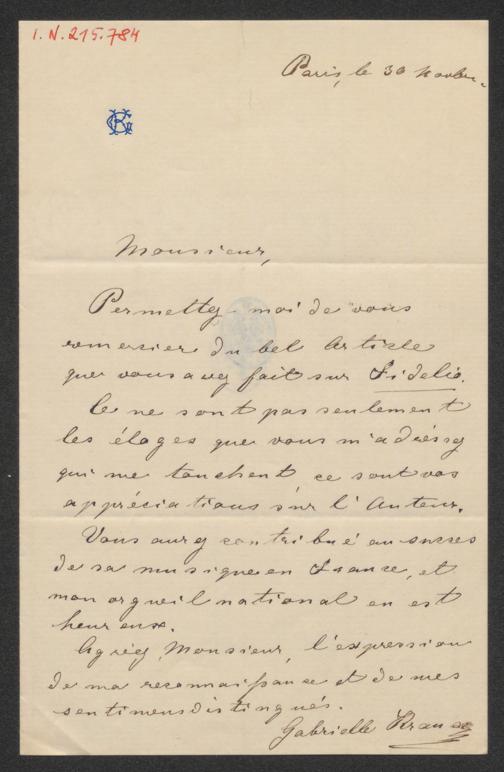 I.N. 215.784
Paris, le 30 Novbre
GK
Monsieur,
Permettez-moi de vous
remercier du bel Article
que vous avez fait sur Fidelio.
Ce ne sont pas seulement
les éloges que vous m'adressez
qui me touchent, ce sont vos
appréciations sur l'Auteur.
Vous aurez contribué au succes
de sa musique en France, et
mon orgueil national en est
heureux.
Agréez, Monsieur, l'expression
de ma reconnaissance et de mes
sentimens distingués.
Gabrielle Krauss